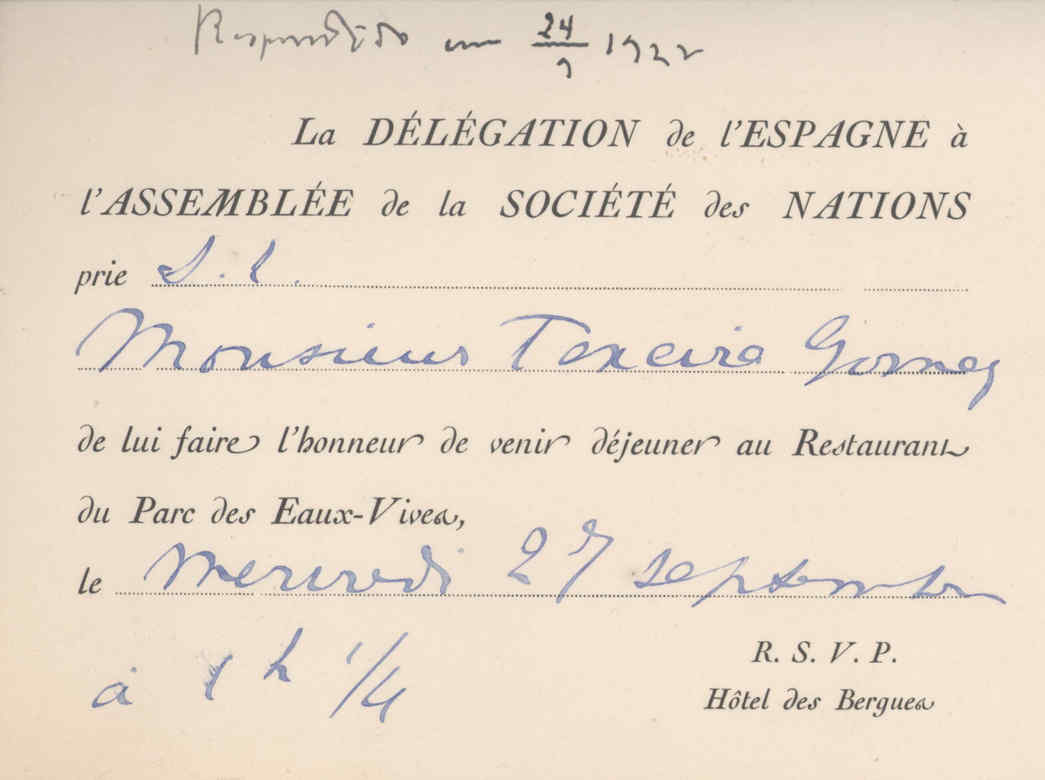 Respondido em 24/9 1922
La DÉLÉGATION de l'ESPAGNE à
l'ASSEMBLÉE de la SOCIÉTÉ des NATIONS
prie S. E.
Monsieur Texeira Gomes
de lui faire l'honneur de venir déjeuner au Restaurant
du Parc des Eaux-Vives,
le mercredi 27 septembre
à 1 h 1/4
R. S. V. P.
Hôtel des Bergues